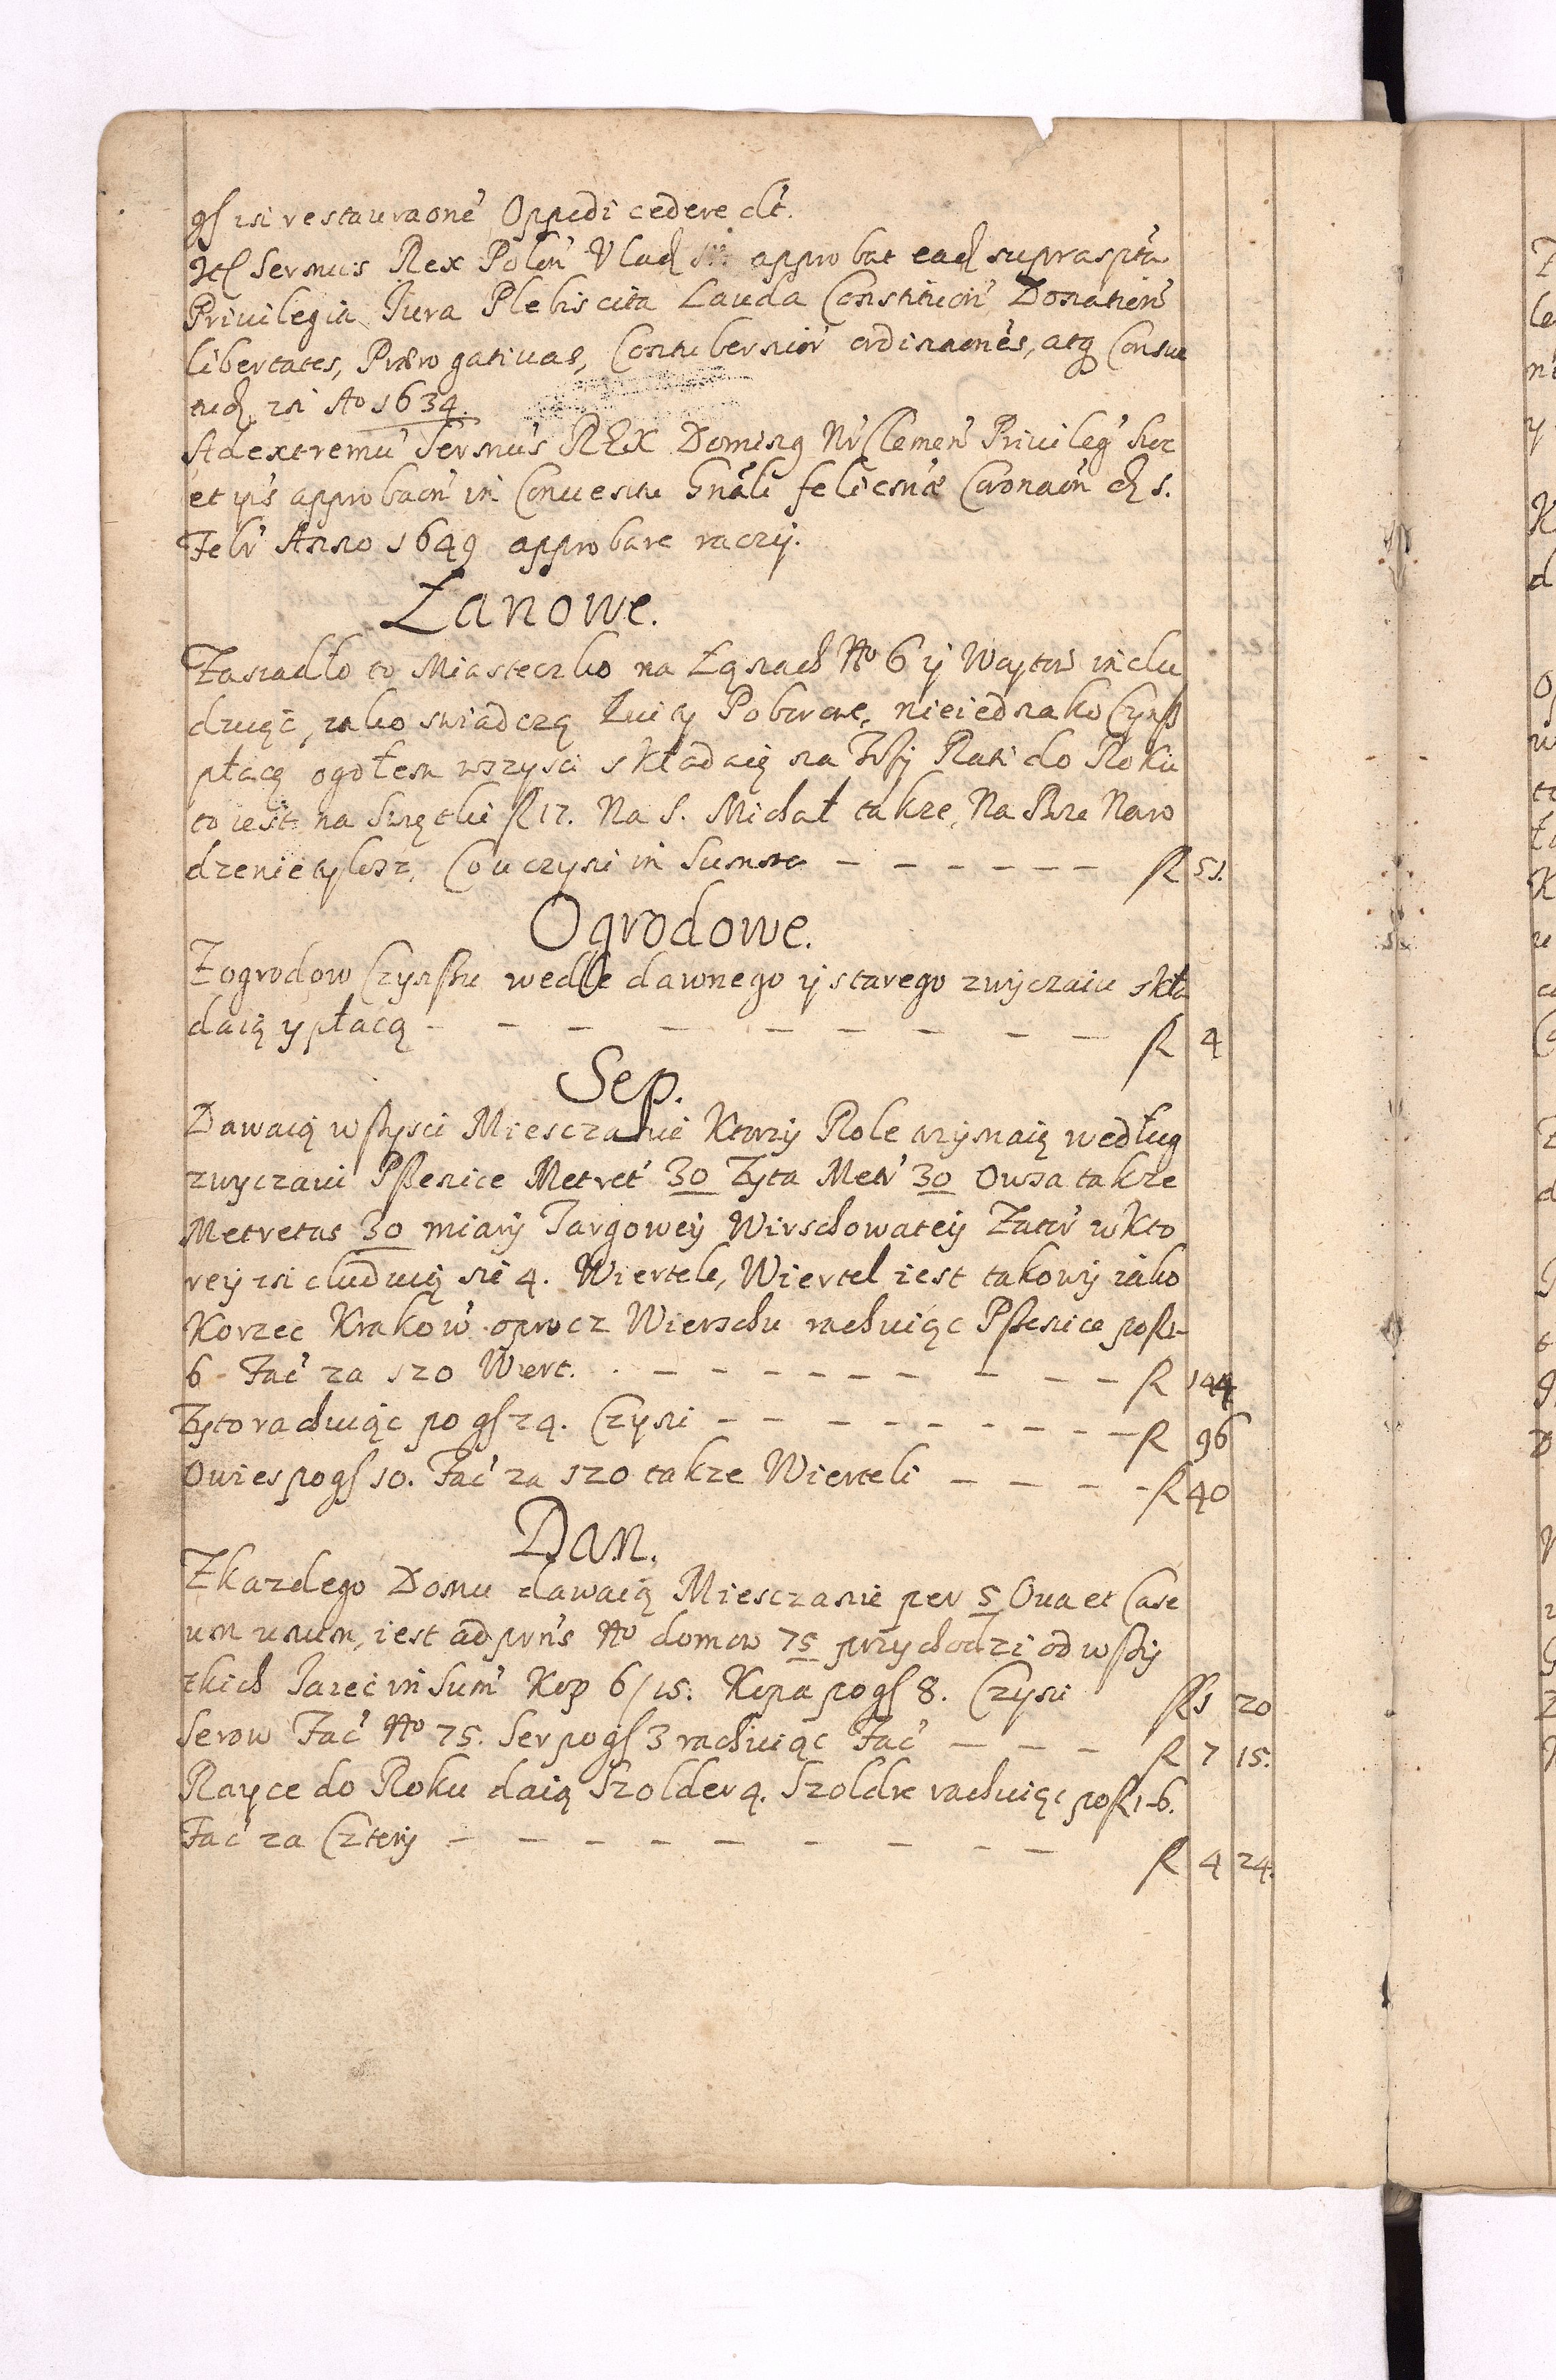 gſ in restauraone' Oppidi cedere dt'.
Itꝭ Sermus Rex Polon' Vlad approbat ead supraspta
Privilegia Iura Plebiscita Lauda Constitucion' Donation'
libertates, Prærogativas, Contubernior' ordinaones, atq Consue
tud in Ao 1634.
Ad extremu' Sermus REX Dominq Nr' Clemen' Privileg' hec
et ips approbaon' in Conventu Gnali felicsnæ Coronaon' d 1.
Febr' Anno 1649 approbare raczÿ.
Łanowe.
Zasiadło to Miasteczko na Łąnach No 6 ÿ Waytow inclu
duiąc, iako swiadczą Kwity Poborowe, nieiednako Czynß
płacą ogołem wszysci składaią na Trzÿ Rati do Roku
to iest na Swętki fl 17. Na S. Michał takze, Na Boze Naro
dzenie tylosz, Co uczyni in Summa — — — — — — fl 51.
Ogrodowe.
Zogrodow Czynßu wedle dawnego ÿ starego zwÿczaiu skła
daią y płacą — — — — — — — — — fl 4
Sep.
Dawaią wßysci Miesczanie Ktorzÿ Role trzÿmaią według
zwyczaiu Pßenice Metret' 30 Zyta Metr' 30 Owsa takze
Metretas 30 miarÿ Targoweÿ Wirschowateÿ Zator' w Kto
reÿ in cluduią sie 4. Wiertele, Wiertel iest takowÿ iako
Korzec Krakow' oprocz Wierschu rachuiąc Pßenice po fl 1-
6 - Fac' za 120 Wiert. — — — — — — — — — fl 144
Zyto rachuiąc po gſ 24. Czyni — — — — — — — — fl 96
Owies po gſ 10. Fac' za 120 takze Wierteli — — — — fl 40
Dan.
Z kazdego Domu dawaią Miesczanie per 5 Oua et Case
um unum, iest ad prns No domow 75 przychodzi od wßÿ
tkich Iaiec in Sum' Kop 6/15. Kopa po gſ 8. Czyni fl 1 20
Serow Fac' No 75. Ser po gſ 3 rachuiąc Fac' — — — fl 7 15.
Rayce do Roku daią Szolder 4. Szoldre rachuiąc po fl 1-6.
Fac' za Czterÿ — — — — — — — — — fl 4 24.